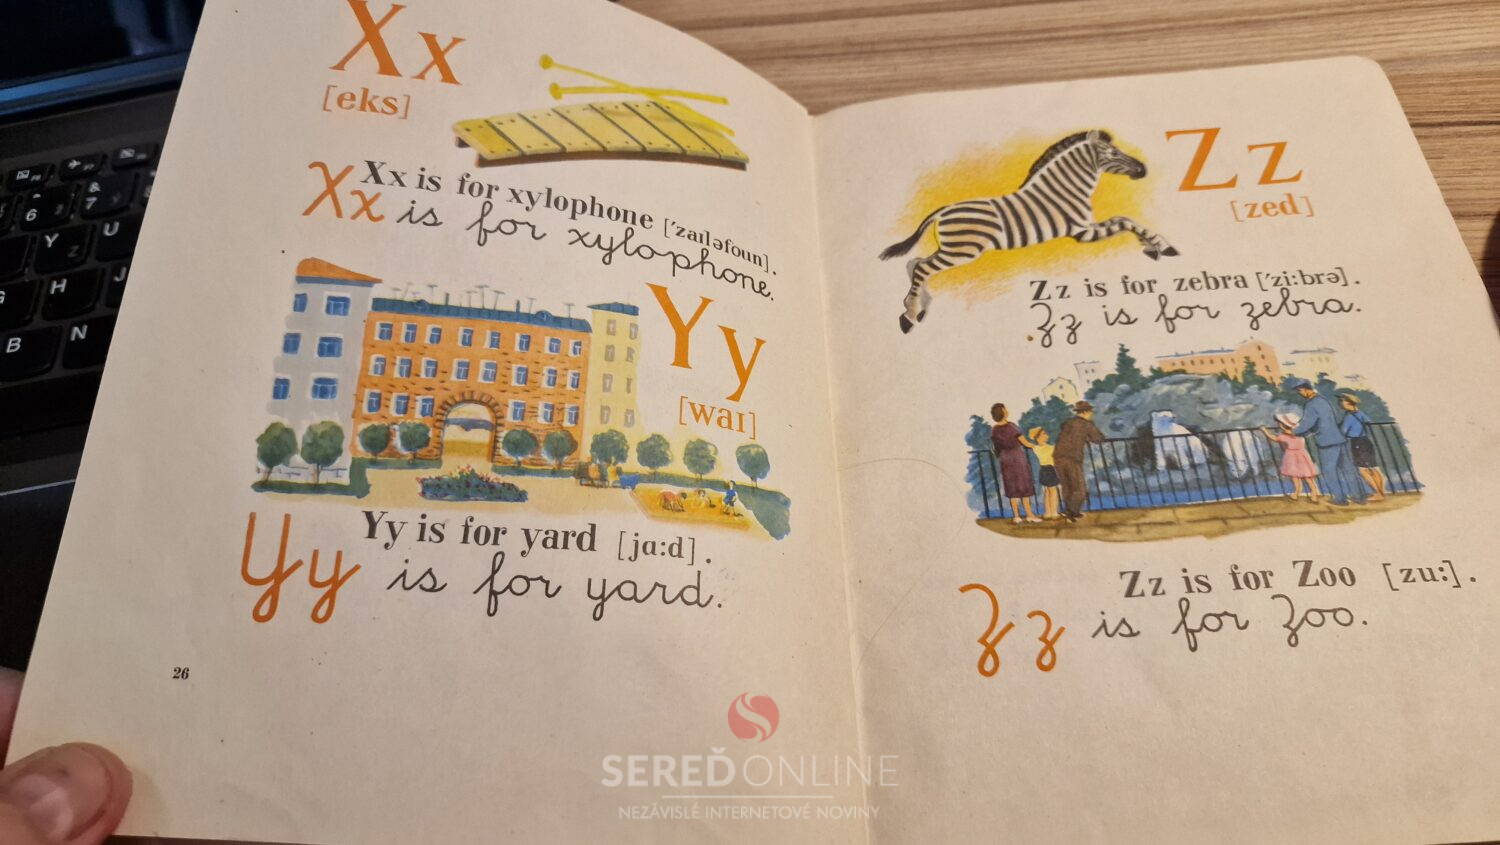 Xx
[eks]
Xx is for xylophone ['zaıləfoun].
Xx is for xylophone.
Yy
[waı]
Yy is for yard [jɑ:d].
Yy is for yard.
26
Zz
[zed]
Zz is for zebra ['zi:brə].
Zz is for zebra.
Zz is for Zoo [zu:].
Zz is for Zoo.
SEREĎONLINE
NEZÁVISLÉ INTERNETOVÉ NOVINY
6
&
7
Y
Z
U
G
H
J
B
N